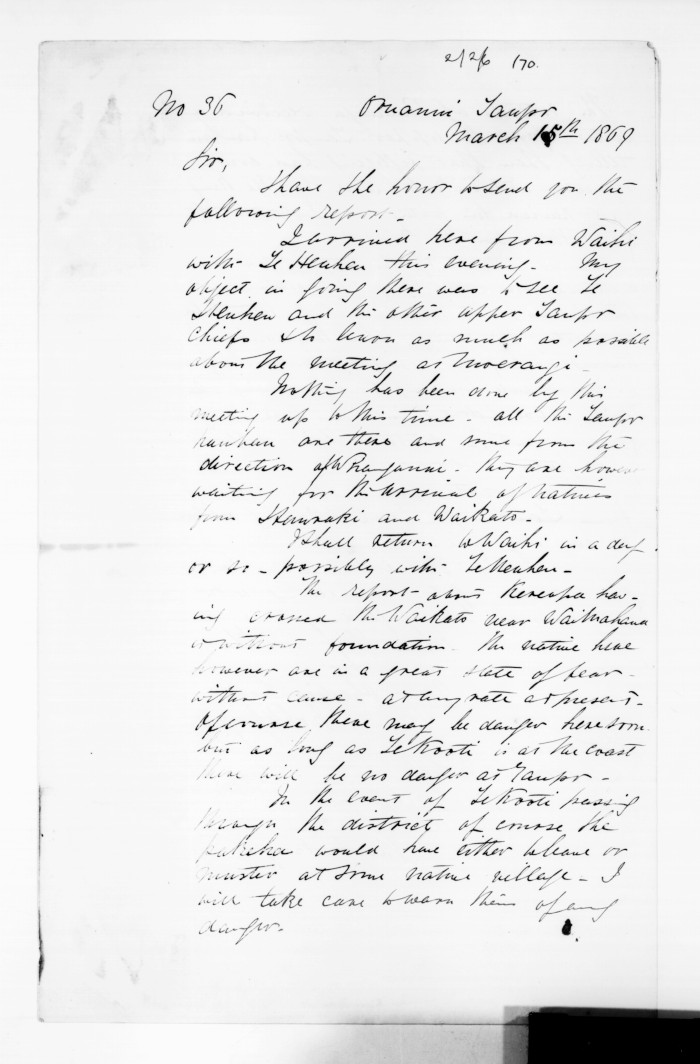 No 36
Oruanui Taupo
March 15th 1869
Sir,
I have the honor to send you the
following report -
I arrived here from Waihi
with Te Heuheu this evening - My
object in going there was to see Te
Heuheu and the other upper Taupo
chiefs & to learn as much as possible
about the meeting at Moerangi -
Nothing has been done by this
meeting up to this time - all the Taupo
hauhau are there and some from the
direction of Wanganui - they are however
waiting for the arrival of natives
from Hauraki and Waikato -
I shall return to Waihi in a day
or so - possibly with Te Heuheu -
The report about Kereopa hav-
ing crossed the Waikato near Waimahana
is without foundation. The native here
however are in a great state of fear -
without cause - at any rate at present -
Of course there may be danger here soon
but as long as Te Kooti is at the coast
there will be no danger at Taupo -
In the event of Te Kooti passing
through the district of course the
pakeha would have either to leave or
muster at some native village - I
will take care to warn them of any
danger.